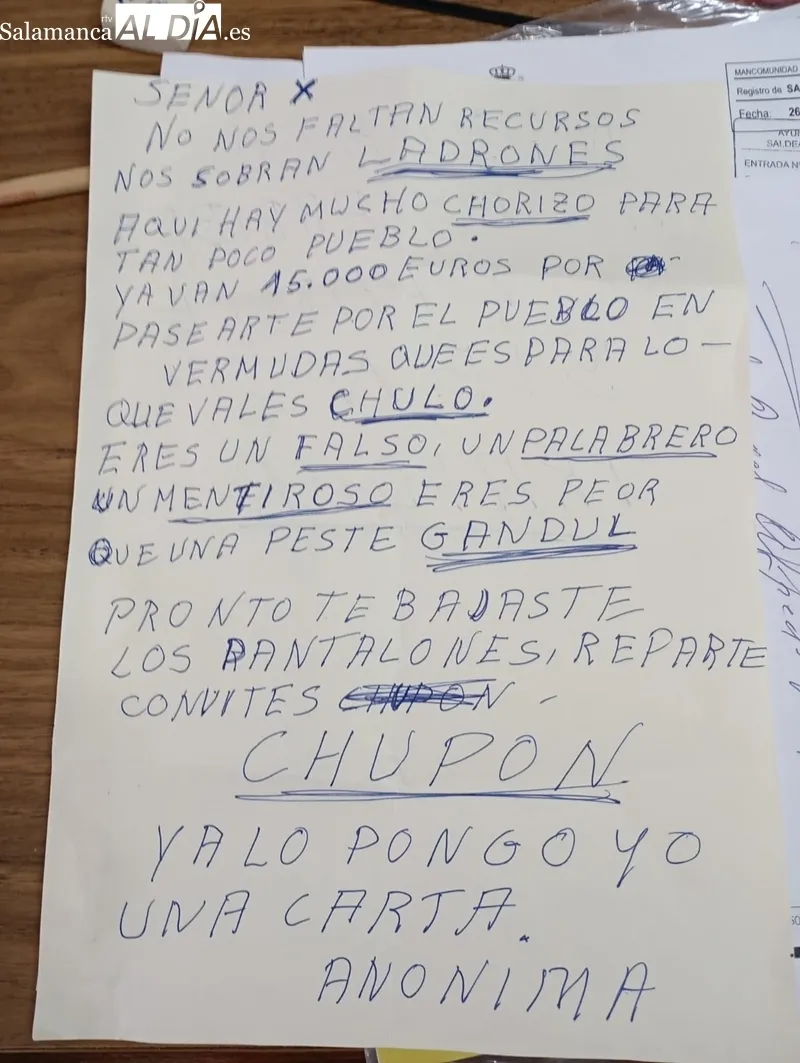 rtv
SalamancaAL DÍA.es
MANCOMUNIDAD
Registro de SA
Fecha: 26
AYU
SALDE
ENTRADA Nº
SENOR X
NO NOS FALTAN RECURSOS
NOS SOBRAN LADRONES
AQUI HAY MUCHO CHORIZO PARA
TAN POCO PUEBLO.
YA VAN 15.000 EUROS POR
PASEARTE POR EL PUEBLO EN
VERMUDAS QUE ES PARA LO –
QUE VALES CHULO.
ERES UN FALSO, UN PALABRERO
UN MENTIROSO ERES PEOR
QUE UNA PESTE GANDUL
PRONTO TE BAJASTE
LOS PANTALONES, REPARTE
CONVITES CHUPON –
CHUPON
YA LO PONGO YO
UNA CARTA.
ANONIMA